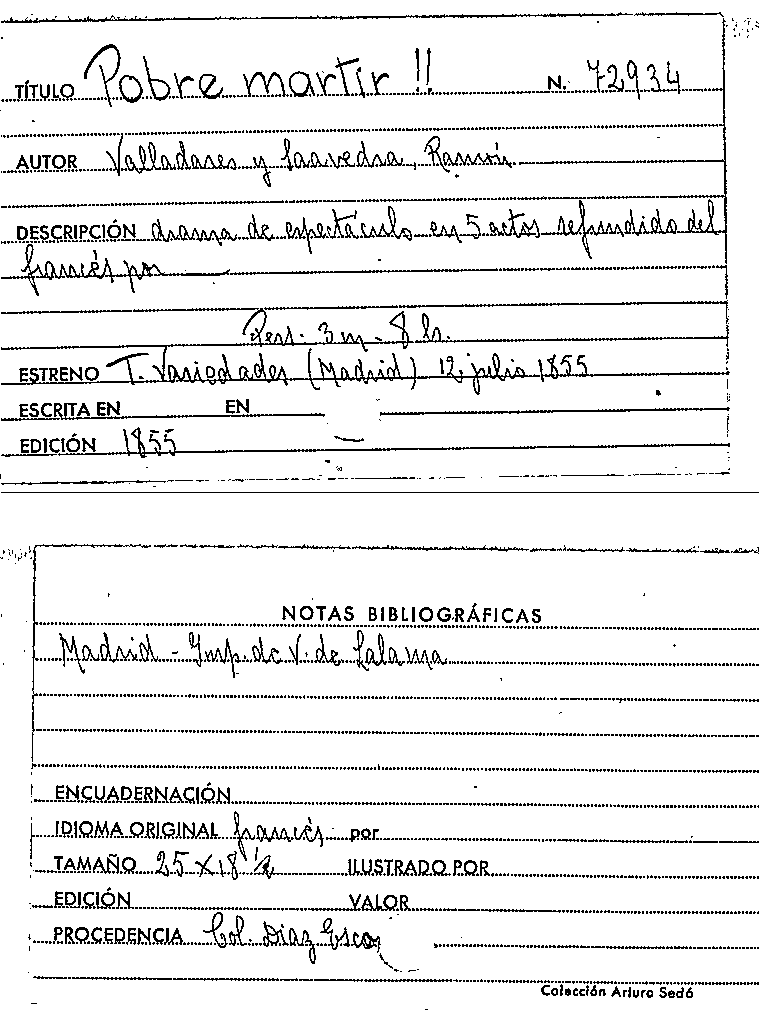 TÍTULO Pobre martir !! N. 72934
AUTOR Valladares y Saavedra, Ramón
DESCRIPCIÓN drama de espectáculo en 5 actos refundido del
francés por —
Pers. 3 m - 8 h.
ESTRENO T. Variedades (Madrid) 12 julio 1855
ESCRITA EN EN
EDICIÓN 1855 —
NOTAS BIBLIOGRÁFICAS
Madrid - Imp. de V. de Lalama
ENCUADERNACIÓN
IDIOMA ORIGINAL francés por
TAMAÑO 25 x 18 1/2 ILUSTRADO POR
EDICIÓN VALOR
PROCEDENCIA Col. Díaz Escov
Colección Arturo Sedó